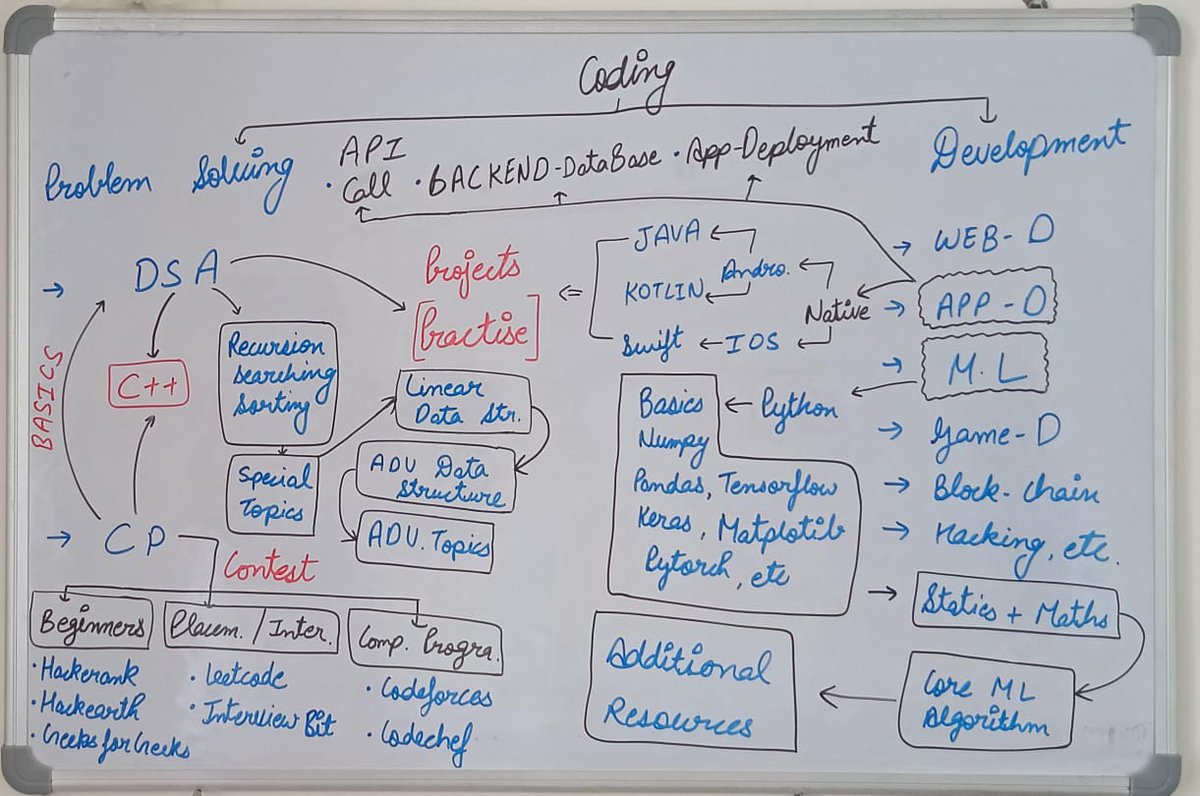 Coding
Problem Solving
API
• Call • BACKEND-DataBase • App-Deployment
Development
→ DSA
BASICS
C++
Recursion
Searching
Sorting
Special
Topics
Projects
[Practise]
Linear
Data Str.
ADV Data
Structure
ADV. Topics
→ CP
Contest
Beginners
• Hackerank
• Hackearth
• Geeks for Geeks
Placem. / Inter.
• Leetcode
• Interview Bit
Comp. Progra.
• Codeforces
• Codechef
→ WEB-D
→ APP-D
→ M.L
→ Game-D
→ Block-chain
→ Hacking, etc.
Native
Andro.
JAVA
KOTLIN
IOS
Swift
Python
Basics
Numpy
Pandas, Tensorflow
Keras, Matplotlib
Pytorch, etc
→ Statics + Maths
Core ML
Algorithm
Additional
Resources